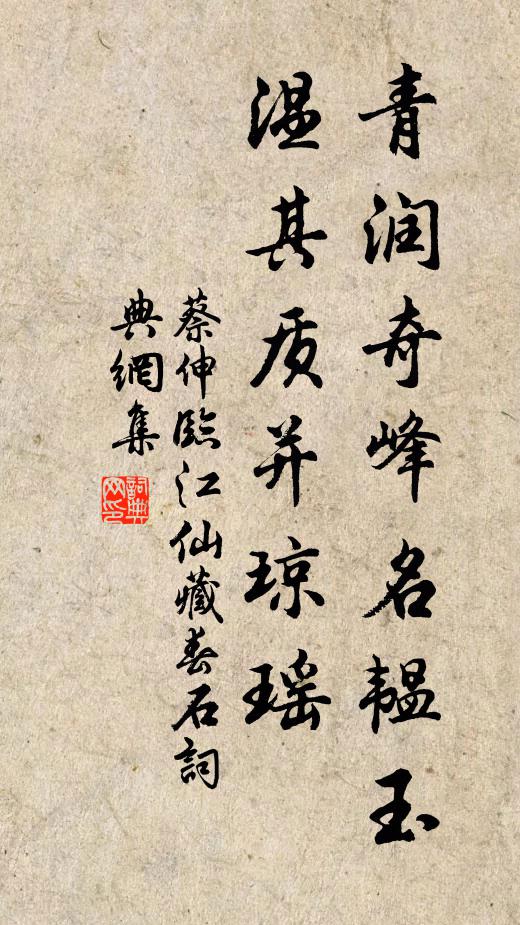 青润奇峰名韫玉
温其质并琼瑶
蔡伸临江仙藏春石詞
典網集
詞典網印